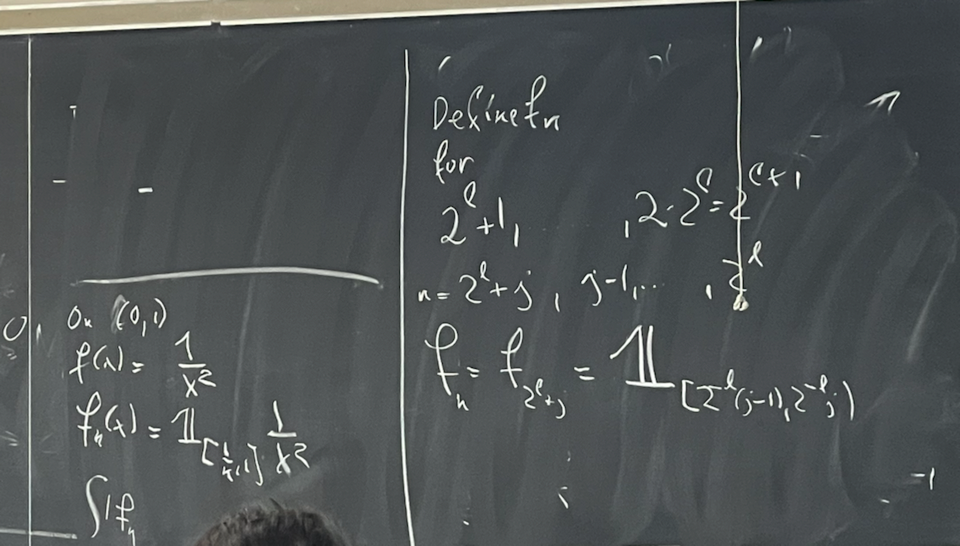 On (0,1)
f(x) = 1/x²
fₙ(x) = 𝟙_[1/n,1] 1/x²
∫|fₙ
Define fₙ
for
2^ℓ+1, , 2·2^ℓ = 2^{ℓ+1}
n = 2^ℓ+j, j-1,... , 2^ℓ
fₙ = f_{2^ℓ+j} = 𝟙_[2^{-ℓ}(j-1), 2^{-ℓ}j)